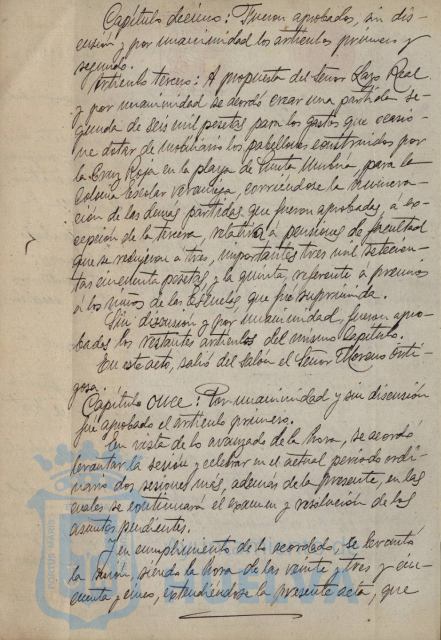 Capítulo décimo: Fueron aprobados, sin dis-
cusión y por unanimidad los artículos primero y
segundo.
Artículo tercero: A propuesta del Señor Lazo Real
y por unanimidad se acordó crear una partida se-
gunda de seis mil pesetas para los gastos que ocasio-
ne dotar de mobiliario los pabellones construidos por
la Cruz Roja en la playa de Punta Umbría para la
Colonia Escolar veraniega, corriéndose la numera-
ción de las demás partidas que fueron aprobadas, a ex-
cepción de la tercera, relativa a pensiones de facultad
que se redujeron a tres, importantes tres mil setecien-
tas cincuenta pesetas y la quinta, referente a premios
á los niños de las Escuelas, que fué suprimida.
Sin discusión y por unanimidad fueron apro-
bados los restantes artículos del mismo Capítulo.
En este acto, salió del Salón el Señor Moreno Ortí-
gosa.
Capítulo once: Por unanimidad y sin discusión
fué aprobado el artículo primero.
En vista de lo avanzado de la hora, se acordó
levantar la sesión y celebrar en el actual periodo ordi-
nario dos sesiones más, además de la presente, en las
cuales se continuará el examen y resolución de los
asuntos pendientes.
Y en cumplimiento de lo acordado, se levantó
la sesión, siendo la hora de las veinte y tres y cin-
cuenta y cinco, extendiéndose la presente acta, que
HUELVA